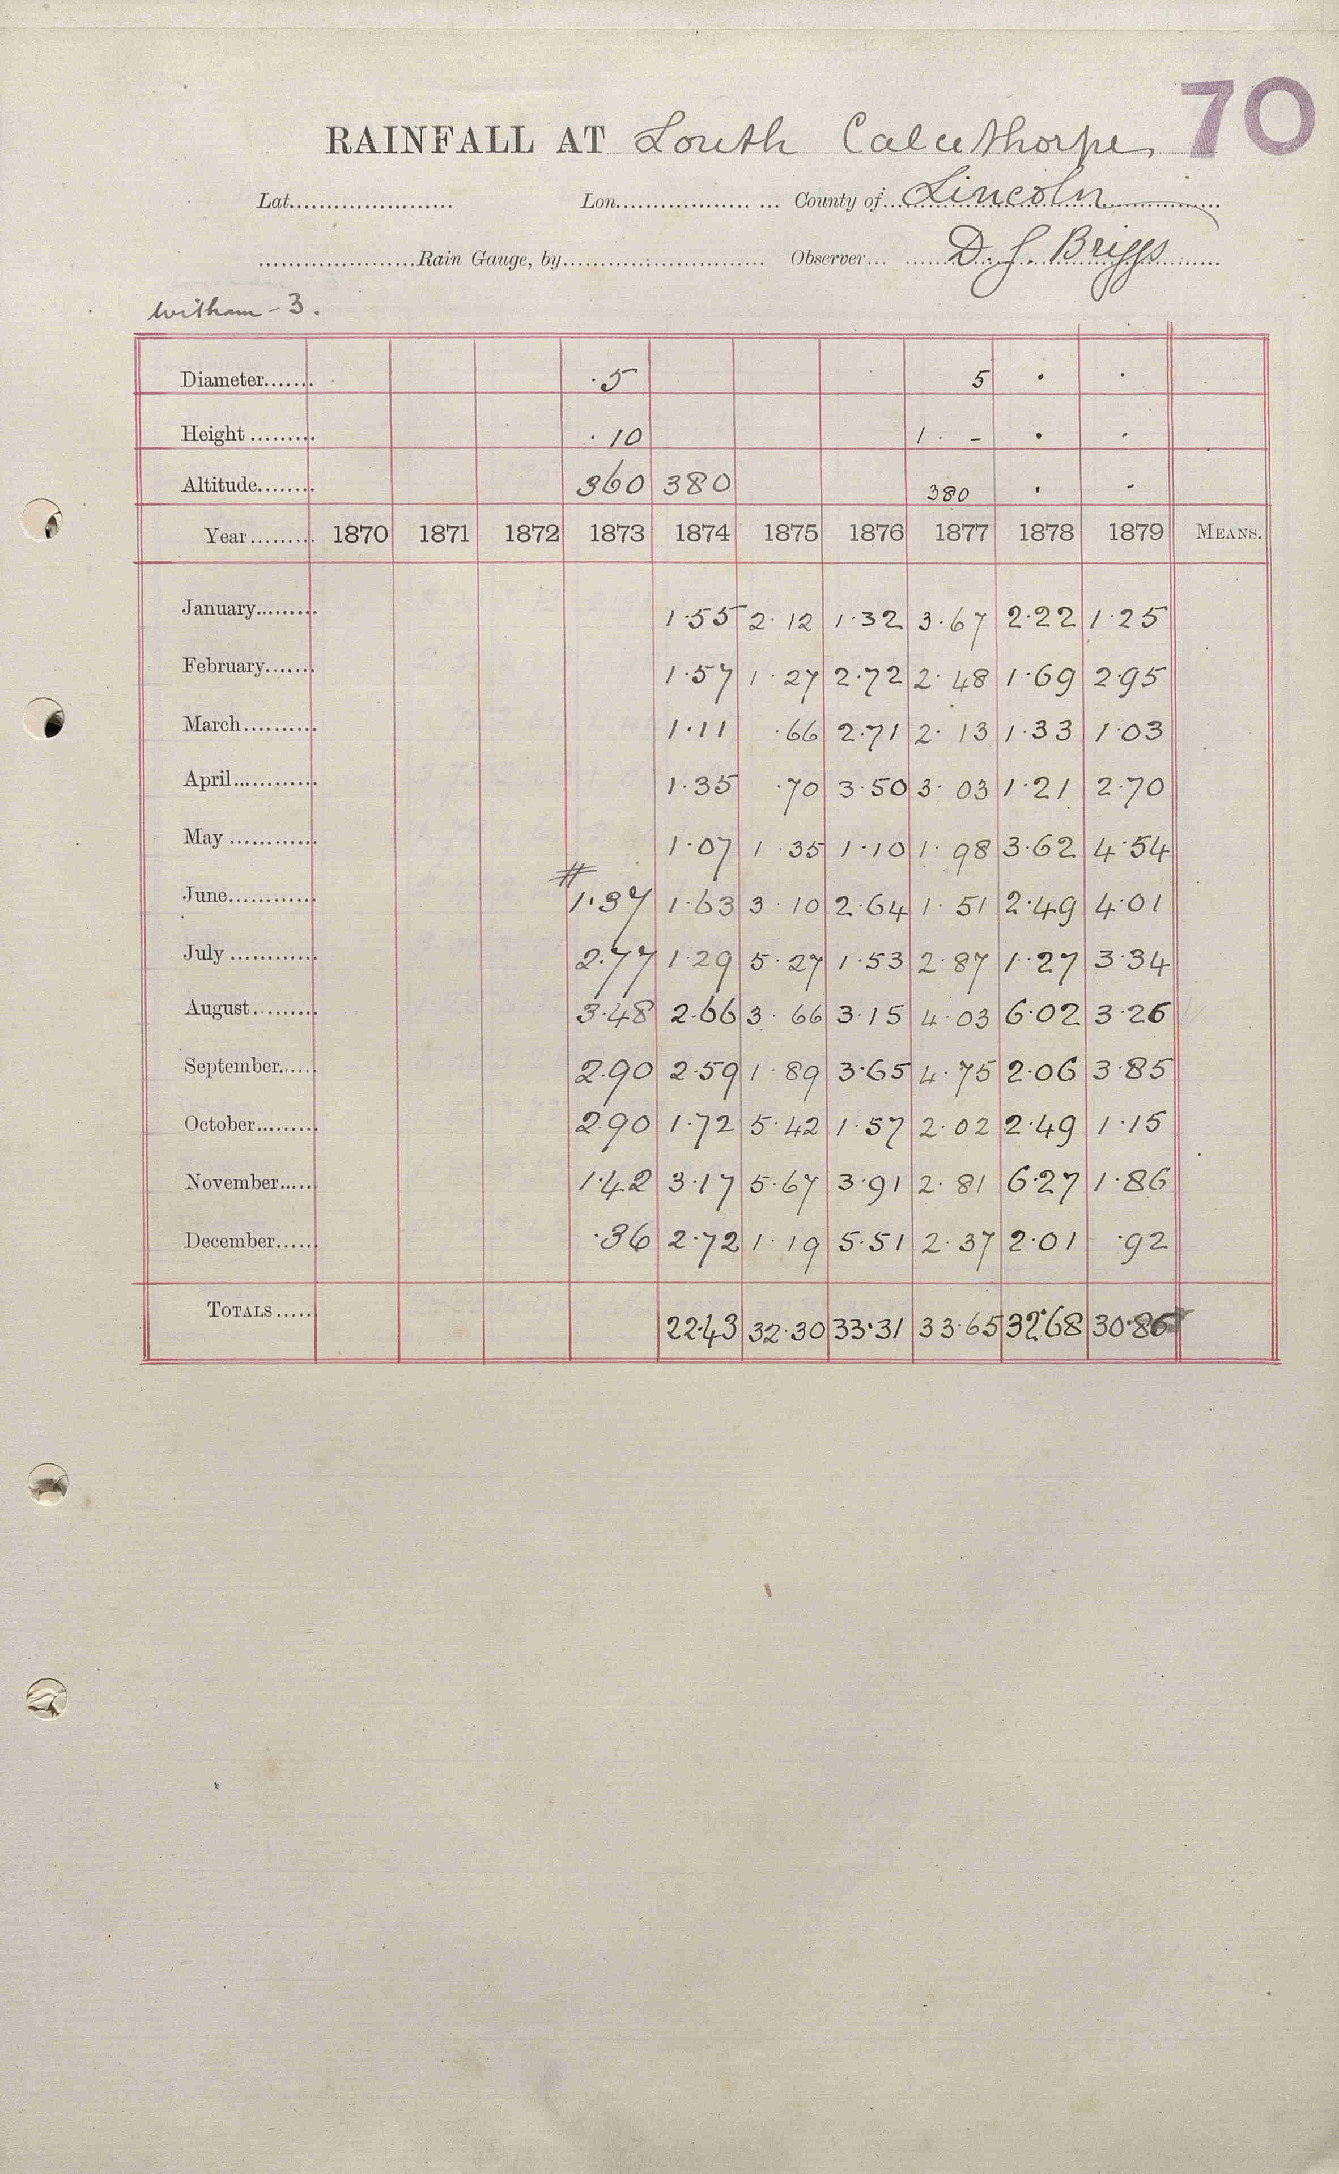 70
RAINFALL AT Louth Calcethorpe
Lat. Lon. County of Lincoln
Rain Gauge, by Observer D. J. Briggs
Witham - 3.
Diameter ·5 5 · ·
Height · 10 1 · - · ·
Altitude 360 380 380 · ·
Year 1870 1871 1872 1873 1874 1875 1876 1877 1878 1879 MEANS.
January 1·55 2·12 1·32 3·67 2·22 1·25
February 1·57 1·27 2·72 2·48 1·69 2·95
March 1·11 ·66 2·71 2·13 1·33 1·03
April 1·35 ·70 3·50 3·03 1·21 2·70
May 1·07 1·35 1·10 1·98 3·62 4·54
June #1·37 1·63 3·10 2·64 1·51 2·49 4·01
July 2·77 1·29 5·27 1·53 2·87 1·27 3·34
August 3·48 2·66 3·66 3·15 4·03 6·02 3·26
September 2·90 2·59 1·89 3·65 4·75 2·06 3·85
October 2·90 1·72 5·42 1·57 2·02 2·49 1·15
November 1·42 3·17 5·67 3·91 2·81 6·27 1·86
December ·36 2·72 1·19 5·51 2·37 2·01 ·92
TOTALS 22·43 32·30 33·31 33·65 32·68 30·86